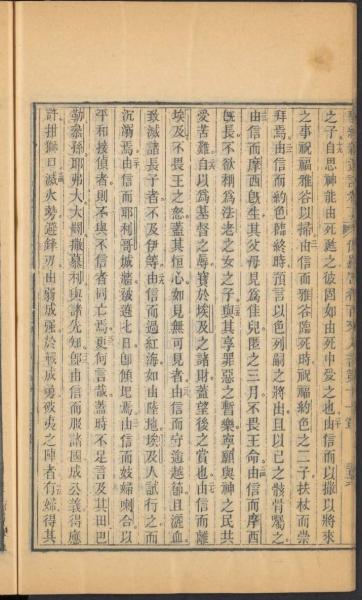 之子自思神能由死甦之彼固如由死中受之也由信而以撒以將來
之事祝福雅谷以掃由信而雅谷臨死時祝福約色之二子扶杖而崇
拜焉由信而約色臨終時預言以色列嗣之將出且以已之骸骨囑之
由信而摩西旣生其父母見爲佳兒匿之三月不畏王命由信而摩西
旣長不欲稱爲法老之女之子與其享罪惡之暫樂寧願與神之民共
愛苦難自以爲基督之辱寶於埃及之諸財蓋望後之賞也由信而離
埃及不畏王之怒蓋其恒心如見無可見者由信而守逾越節且灑血
致滅諸長子者不及伊等由信而過紅海如由陸地埃及人試行之而
沉溺焉由信而耶利哥城牆被遶七日卽傾圮焉由信而妓婦喇合以
平和接偵者則不與不信者同亡焉更何言哉蓋時不足言及其田巴
勒叅孫耶弗大大闢撒慕利與諸先知卽由信而服諸國成公義得應
許掛獅口滅火勢避鋒刃由弱成強於戰成勇破夷之陣者有婦得其